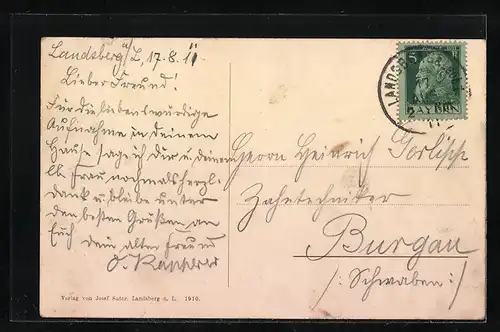 Landsberg a/L, 17.8.11
Lieber Freund!
Für die liebenswürdige
Aufnahme in deinem
Hause sage ich Dir u. deiner
Frau nochmals herzl.
dank u. bleibe unter
den besten Grüßen an
Euch dein alter Freund
Herrn Heinrich
Zahntechniker
Burgau
/: Schwaben :/
5
BAYERN
LANDSB
Verlag von Josef Suter, Landsberg a. L. 1910.